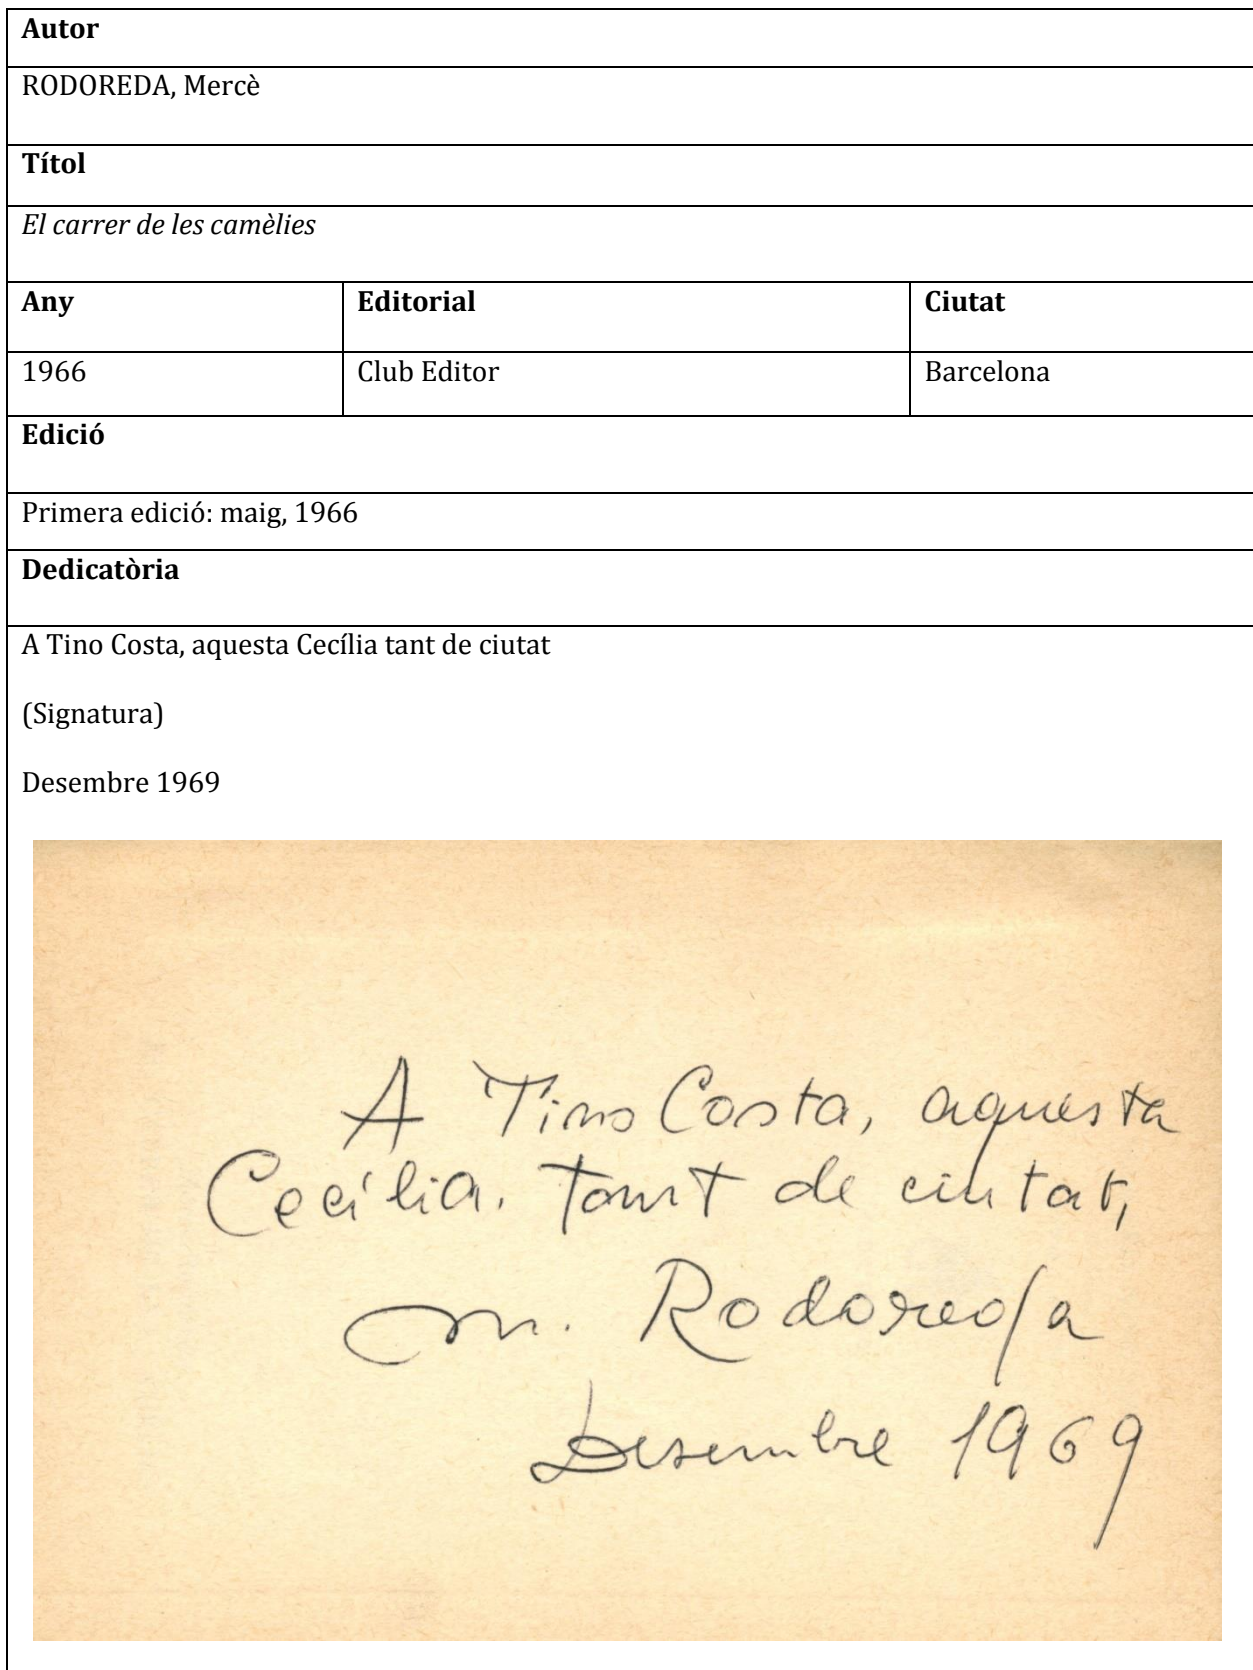 Autor
RODOREDA, Mercè
Títol
El carrer de les camèlies
Any Editorial Ciutat
1966 Club Editor Barcelona
Edició
Primera edició: maig, 1966
Dedicatòria
A Tino Costa, aquesta Cecília tant de ciutat
(Signatura)
Desembre 1969
A Tino Costa, aquesta
Cecília. tant de ciutat,
M. Rodoreda
Desembre 1969